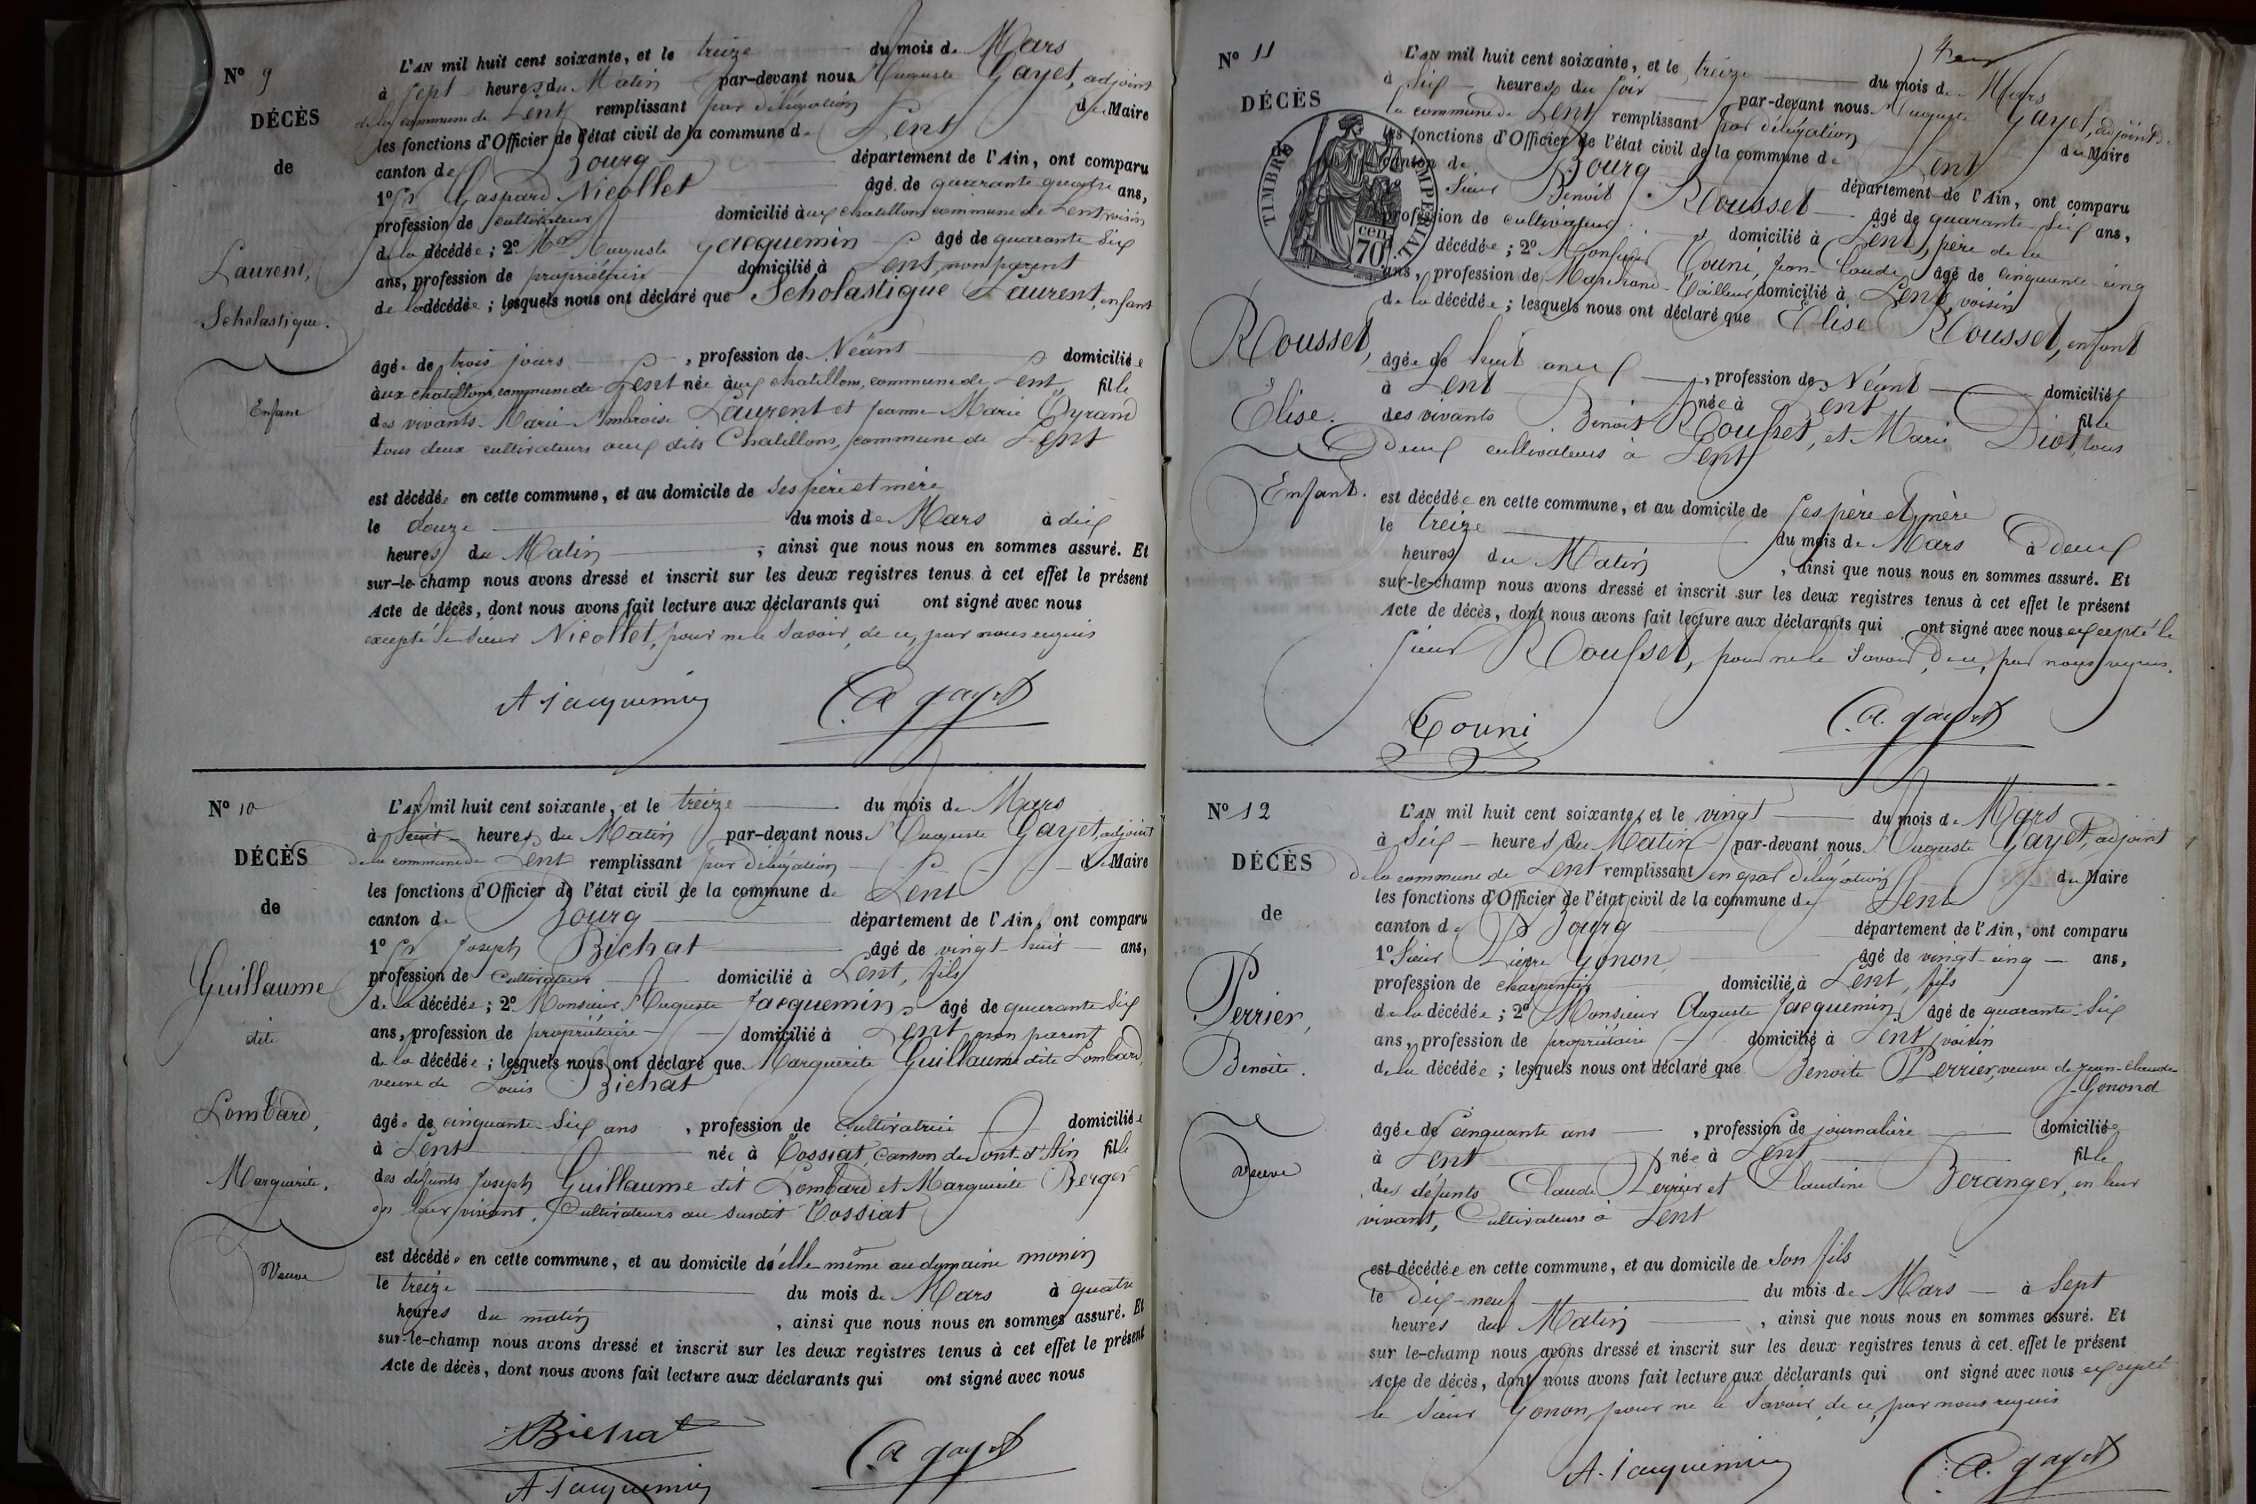 N° 9
DÉCÈS
de
Laurent,
Scholastique.
Enfant
L'AN mil huit cent soixante, et le treize du mois de Mars
à sept heures du Matin par-devant nous Auguste Gayet, adjoint
de la commune de Lent remplissant par délégation du Maire
les fonctions d'Officier de l'état civil de la commune de Lent
canton de Bourg département de l'Ain, ont comparu
1° Sr Gaspard Nicollet âgé de quarante quatre ans,
profession de cultivateur domicilié aux chatillons commune de Lent, voisin
de la décédée; 2° Mr Auguste Jacquemin âgé de quarante six
ans, profession de propriétaire domicilié à Lent, non parent
de la décédée; lesquels nous ont déclaré que Scholastique Laurent, enfant
âgée de trois jours, profession de Néant domiciliée
aux chatillons, commune de Lent née aux chatillons, commune de Lent, fille
des vivants Marie Ambroise Laurent et Jeanne Marie
tous deux cultivateurs aux dits Chatillons, commune de Lent
est décédée en cette commune, et au domicile de ses père et mère
le douze du mois de Mars à dix
heures du Matin, ainsi que nous nous en sommes assuré. Et
sur-le-champ nous avons dressé et inscrit sur les deux registres tenus à cet effet le présent
Acte de décès, dont nous avons fait lecture aux déclarants qui ont signé avec nous
excepté le sieur Nicollet, pour ne le savoir, de ce, par nous requis
A Jacquemin
A gayet
N° 10
DÉCÈS
de
Guillaume
dite
Lombard,
Marguerite.
Veuve
L'AN mil huit cent soixante, et le treize du mois de Mars
à huit heures du Matin par-devant nous Auguste Gayet, adjoint
de la commune de Lent remplissant par délégation du Maire
les fonctions d'Officier de l'état civil de la commune de Lent
canton de Bourg département de l'Ain, ont comparu
1° Sr Joseph Bichat âgé de vingt huit ans,
profession de cultivateur domicilié à Lent, fils
de la décédée; 2° Monsieur Auguste Jacquemin, âgé de quarante six
ans, profession de propriétaire domicilié à Lent, non parent
de la décédée; lesquels nous ont déclaré que Marguerite Guillaume dite Lombard,
veuve de Louis Bichat
âgée de cinquante-six ans, profession de cultivatrice domiciliée
à Lent née à Tossiat, canton de Pont-d'Ain fille
des défunts Joseph Guillaume dit Lombard et Marguerite Berger
en leur vivant, Cultivateurs au susdit Tossiat
est décédée en cette commune, et au domicile d'elle même au domaine monin
le treize du mois de Mars à quatre
heures du matin, ainsi que nous nous en sommes assuré. Et
sur-le-champ nous avons dressé et inscrit sur les deux registres tenus à cet effet le présent
Acte de décès, dont nous avons fait lecture aux déclarants qui ont signé avec nous
Bichat
A gayet
A Jacquemin
N° 11
DÉCÈS
TIMBRE IMPÉRIAL
70 cen
Rousset,
Elise.
Enfant.
L'AN mil huit cent soixante, et le treize du mois de Mars
à six heures du soir par-devant nous Auguste Gayet, adjoint
de la commune de Lent remplissant par délégation du Maire
les fonctions d'Officier de l'état civil de la commune de Lent
canton de Bourg département de l'Ain, ont comparu
Sieur Benoit Rousset âgé de quarante six ans,
profession de cultivateur domicilié à Lent, père de la
décédée; 2° Monsieur Touni, Jean Claude, âgé de cinquante-cinq
ans, profession de Marchand-Tailleur domicilié à Lent, voisin
de la décédée; lesquels nous ont déclaré que Elise Rousset, enfant
âgée de huit ans, profession de Néant domiciliée
à Lent née à Lent fille
des vivants Benoit Rousset, et Marie Diot, tous
deux cultivateurs à Lent
est décédée en cette commune, et au domicile de ses père et mère
le treize du mois de Mars à deux
heures du Matin, ainsi que nous nous en sommes assuré. Et
sur-le-champ nous avons dressé et inscrit sur les deux registres tenus à cet effet le présent
Acte de décès, dont nous avons fait lecture aux déclarants qui ont signé avec nous excepté le
sieur Rousset, pour ne le savoir, de ce, par nous requis.
Touni
A. gayet
N° 12
DÉCÈS
de
Perrier,
Benoite.
Veuve
L'AN mil huit cent soixante, et le vingt du mois de Mars
à six heures du Matin par-devant nous Auguste Gayet, adjoint
de la commune de Lent remplissant par délégation du Maire
les fonctions d'Officier de l'état civil de la commune de Lent
canton de Bourg département de l'Ain, ont comparu
1° Sieur Pierre Gonon, âgé de vingt-cinq ans,
profession de charpentier domicilié à Lent, fils
de la décédée; 2° Monsieur Auguste Jacquemin, âgé de quarante-six
ans, profession de propriétaire domicilié à Lent, voisin
de la décédée; lesquels nous ont déclaré que Benoite Perrier, veuve de Jean-Claude
Gonond
âgée de cinquante ans, profession de journalière domiciliée
à Lent née à Lent fille
des défunts Claude Perrier et Claudine Beranger, en leur
vivant, Cultivateurs à Lent
est décédée en cette commune, et au domicile de son fils
le Dix-neuf du mois de Mars à sept
heures du Matin, ainsi que nous nous en sommes assuré. Et
sur le-champ nous avons dressé et inscrit sur les deux registres tenus à cet effet le présent
Acte de décès, dont nous avons fait lecture aux déclarants qui ont signé avec nous excepté
le sieur Gonon, pour ne le savoir, de ce, par nous requis
A. Jacquemin
A. gayet